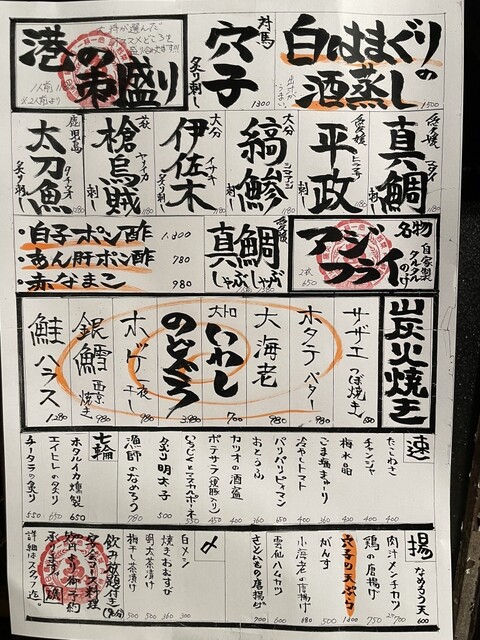 港の市盛り
大将が選んだ
1人前
※2人前より
対馬
穴子
炙り刺し
1300
白はまぐりの
酒蒸し
1500
愛媛
真鯛
マダイ
刺し
愛媛
平政
ヒラマサ
刺し
1180
大分
縞鯵
シマアジ
刺し
1180
大分
伊佐木
イサキ
炙り刺し
1180
萩
槍烏賊
ヤリイカ
刺し
1180
鹿児島
太刀魚
タチウオ
炙り刺し
1180
名物
アジフライ
自家製
タルタル
のせ
2枚
650
愛媛
真鯛
しゃぶしゃぶ
・白子ポン酢 1.200
・あん肝ポン酢 780
・赤なまこ 980
炭火焼き
サザエ つぼ焼き
ホタテバター
980
大海老
980
大和
いわし
700
のどぐろ
3.980
ホッケ一夜干し
980
銀鱈西京焼き
980
鮭ハラス
1.280
速
たこわさ 400
チャンジャ 400
梅水晶 400
ごま塩きゅーり
冷やしトマト 400
パリパリピーマン
おとうふ
カツオの酒盗 400
ポテサラ
いぶりがっことマスカルポーネ
炙り明太子 500
漁師のなめろう 780
七輪
ホタルイカ燻製 650
エイヒレの炙り 650
チータラの炙り 550
揚
なめろう天 600
肉汁メンチカツ
鶏の唐揚げ 750
穴子の天ぷら 1400
がんす 500
小海老の唐揚げ 680
雲仙ハムカツ 600
さといもの唐揚げ 700
〆
白メシ 300
焼きおむすび
明太茶漬け 500
梅干し茶漬け 500
飲み放題付き
宴会コース料理
承ります
詳細はスタッフ迄。